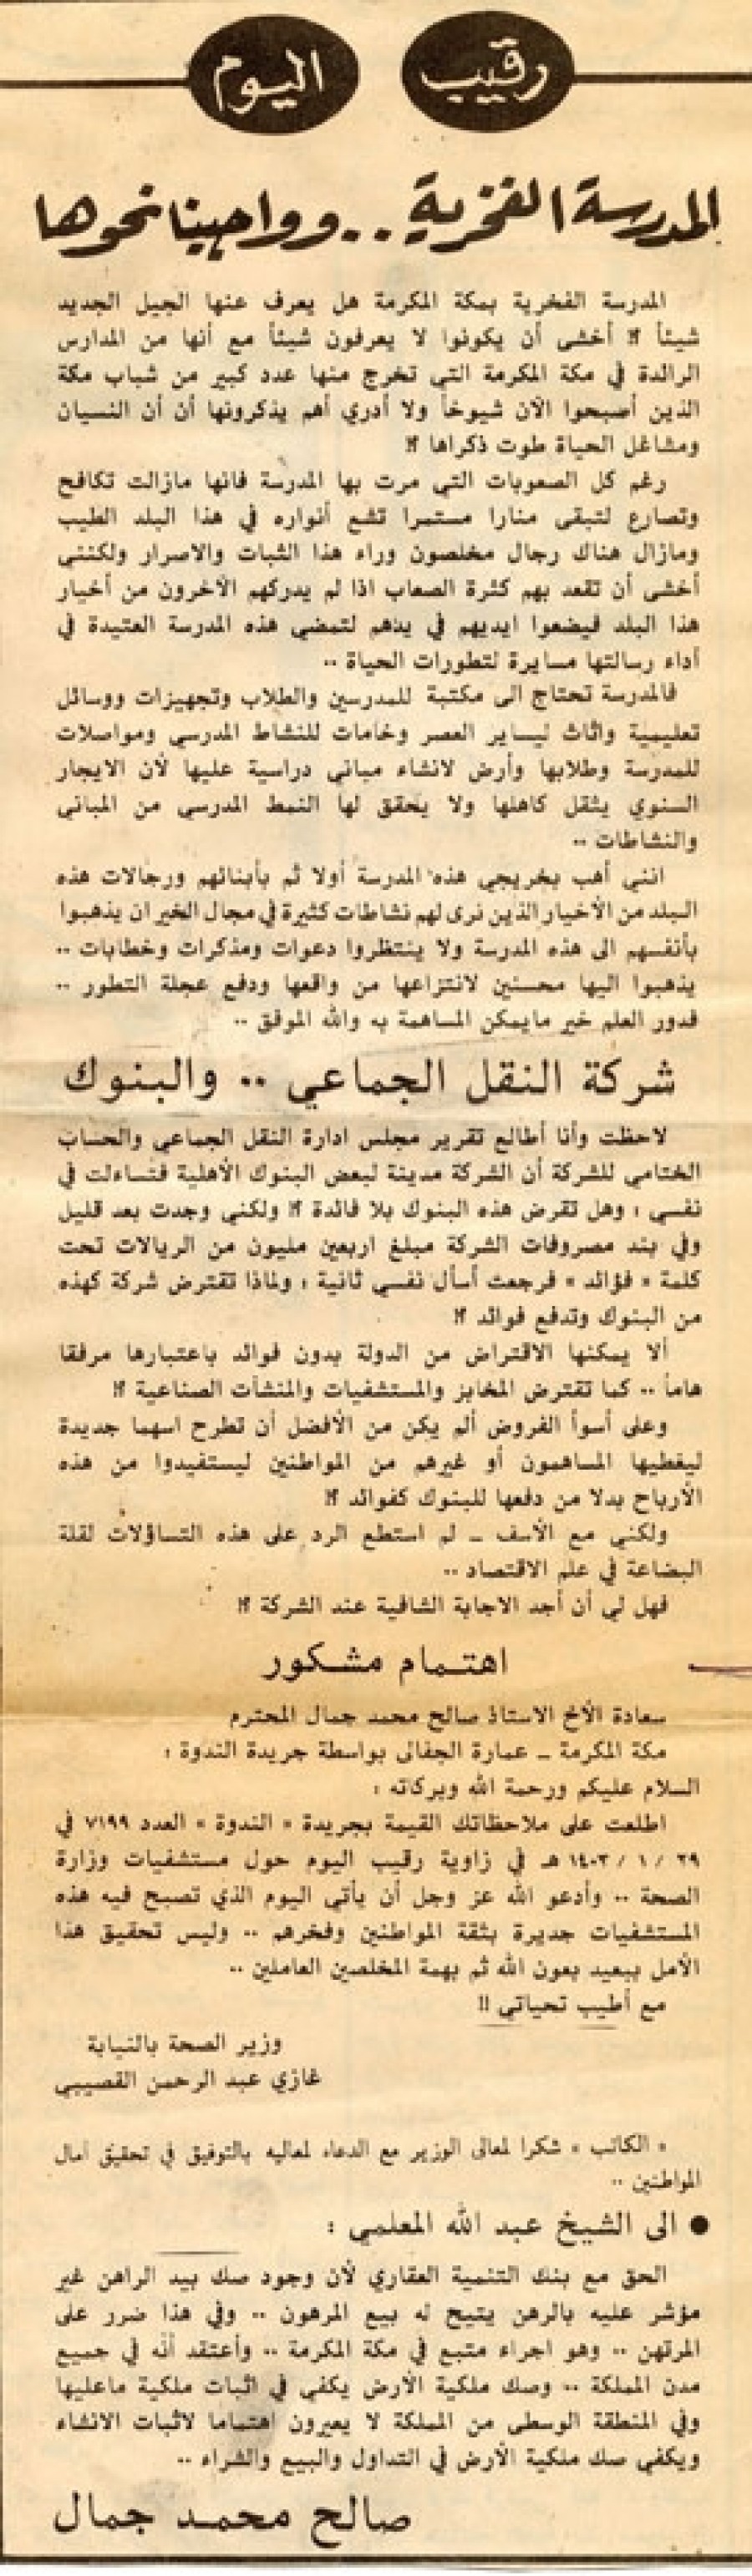 رقيب اليوم
المدرسة الفخرية .. وواجبنا نحوها
المدرسة الفخرية بمكة المكرمة هل يعرف عنها الجيل الجديد
شيئاً ؟! أخشى أن يكونوا لا يعرفون شيئاً مع أنها من المدارس
الرائدة في مكة المكرمة التي تخرج منها عدد كبير من شباب مكة
الذين أصبحوا الآن شيوخاً ولا أدري أهم يذكرونها أن أن النسيان
ومشاغل الحياة طوت ذكراها ؟!
رغم كل الصعوبات التي مرت بها المدرسة فانها مازالت تكافح
وتصارع لتبقى منارا مستمرا تشع أنواره في هذا البلد الطيب
ومازال هناك رجال مخلصون وراء هذا الثبات والاصرار ولكننى
أخشى أن تقعد بهم كثرة الصعاب اذا لم يدركهم الآخرون من أخيار
هذا البلد فيضعوا ايديهم في يدهم لتمضي هذه المدرسة العتيدة في
أداء رسالتها مسايرة لتطورات الحياة ..
فالمدرسة تحتاج الى مكتبة للمدرسين والطلاب وتجهيزات ووسائل
تعليمية واثاث ليساير العصر وخامات للنشاط المدرسي ومواصلات
للمدرسة وطلابها وأرض لانشاء مباني دراسية عليها لأن الايجار
السنوي يثقل كاهلها ولا يحقق لها النمط المدرسي من المبانى
والنشاطات ..
اننى أهب بخريجي هذه المدرسة أولا ثم بأبنائهم ورجالات هذه
البلد من الأخيار الذين نرى لهم نشاطات كثيرة في مجال الخير ان يذهبوا
بأنفسهم الى هذه المدرسة ولا ينتظروا دعوات ومذكرات وخطابات ..
يذهبوا اليها محسنين لانتزاعها من واقعها ودفع عجلة التطور ..
فدور العلم خير مايمكن المساهمة به والله الموفق ..
شركة النقل الجماعي .. والبنوك
لاحظت وأنا أطالع تقرير مجلس ادارة النقل الجماعي والحساب
الختامي للشركة أن الشركة مدينة لبعض البنوك الأهلية فتساءلت في
نفسي ، وهل تقرض هذه البنوك بلا فائدة ؟! ولكني وجدت بعد قليل
وفي بند مصروفات الشركة مبلغ اربعين مليون من الريالات تحت
كلمة « فوائد » فرجعت أسأل نفسي ثانية ، ولماذا تقترض شركة كهذه
من البنوك وتدفع فوائد ؟!
ألا يمكنها الاقتراض من الدولة بدون فوائد باعتبارها مرفقا
هاماً .. كما تقترض المخابز والمستشفيات والمنشآت الصناعية ؟!
وعلى أسوأ الفروض ألم يكن من الأفضل أن تطرح اسهما جديدة
ليغطيها المساهمون أو غيرهم من المواطنين ليستفيدوا من هذه
الأرباح بدلا من دفعها للبنوك كفوائد ؟!
ولكني مع الأسف ـ لم استطع الرد على هذه التساؤلات لقلة
البضاعة في علم الاقتصاد ..
فهل لي أن أجد الاجابة الشافية عند الشركة ؟!
اهتمام مشكور
سعادة الأخ الاستاذ صالح محمد جمال المحترم
مكة المكرمة ـ عمارة الجفالى بواسطة جريدة الندوة ،
السلام عليكم ورحمة الله وبركاته ،
اطلعت على ملاحظاتك القيمة بجريدة « الندوة » العدد ٧١٩٩ في
٢٩ / ١ / ١٤٠٣ هـ في زاوية رقيب اليوم حول مستشفيات وزارة
الصحة .. وأدعو الله عز وجل أن يأتي اليوم الذي تصبح فيه هذه
المستشفيات جديرة بثقة المواطنين وفخرهم .. وليس تحقيق هذا
الأمل ببعيد بعون الله ثم بهمة المخلصين العاملين ..
مع أطيب تحياتي !!
وزير الصحة بالنيابة
غازي عبد الرحمن القصيبي
« الكاتب » شكرا لمعالى الوزير مع الدعاء لمعاليه بالتوفيق في تحقيق آمال
المواطنين ..
● الى الشيخ عبد الله المعلمي :
الحق مع بنك التنمية العقاري لأن وجود صك بيد الراهن غير
مؤشر عليه بالرهن يتيح له بيع المرهون .. وفي هذا ضرر على
المرتهن .. وهو اجراء متبع في مكة المكرمة .. وأعتقد أنه في جميع
مدن المملكة .. وصك ملكية الأرض يكفي في اثبات ملكية ماعليها
وفي المنطقة الوسطى من المملكة لا يعيرون اهتماما لاثبات الانشاء
ويكفي صك ملكية الأرض في التداول والبيع والشراء ..
صالح محمد جمال